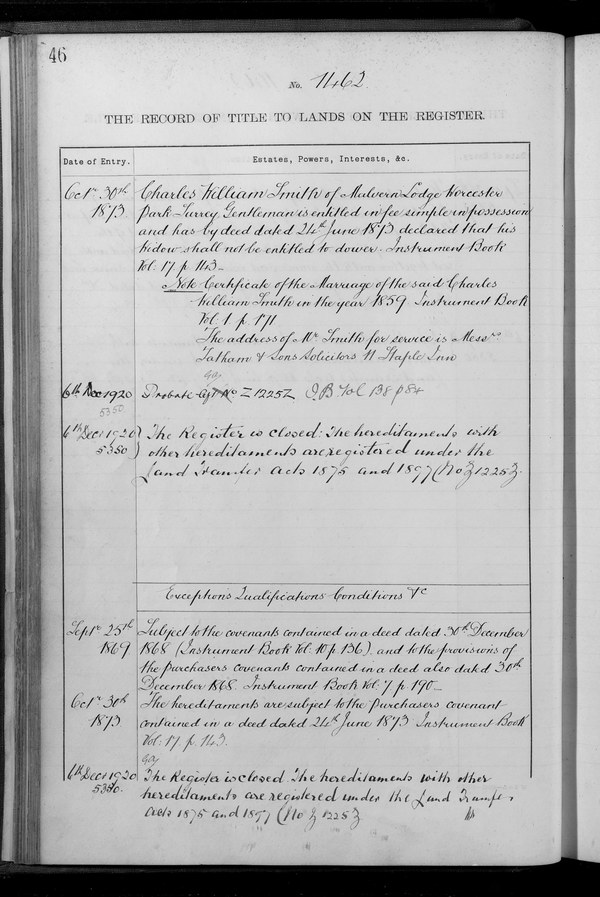 46
No. 1462
THE RECORD OF TITLE TO LANDS ON THE REGISTER.
Date of Entry.
Estates, Powers, Interests, &c.
Octr 30th 1873
Charles William Smith of Malvern Lodge Worcester
Park Surrey Gentleman is entitled in fee simple in possession
and has by deed dated 24th June 1873 declared that his
widow shall not be entitled to dower. Instrument Book
Vol: 17. p. 143.
Note Certificate of the Marriage of the said Charles
William Smith in the year 1859 Instrument Book
Vol: 1 p. 171
The address of Mr Smith for service is Messrs
Tatham & Sons Solicitors 11 Staple Inn
6th Dec 1920
5350
Probate No Z 1225Z I.B. Vol 138 p 84
6th Decr 1920
5350
The Register is closed: The hereditaments with
other hereditaments are registered under the
Land Transfer Acts 1875 and 1897 (No Z 1225 Z.
Exceptions Qualifications Conditions &c
Septr 25th 1869
Subject to the covenants contained in a deed dated 30th December
1868 (Instrument Book Vol: 10 p. 136) and to the provisions of
the purchasers covenants contained in a deed also dated 30th
December 1868. Instrument Book Vol. 7. p. 190
Octr 30th 1873
The hereditaments are subject to the Purchasers covenant
contained in a deed dated 24th June 1873 Instrument Book
Vol: 17. p. 143.
6th Decr 1920
5350.
The Register is closed. The hereditaments with other
hereditaments are registered under the Land Transfer
Acts 1875 and 1897 (No Z 1225 Z.